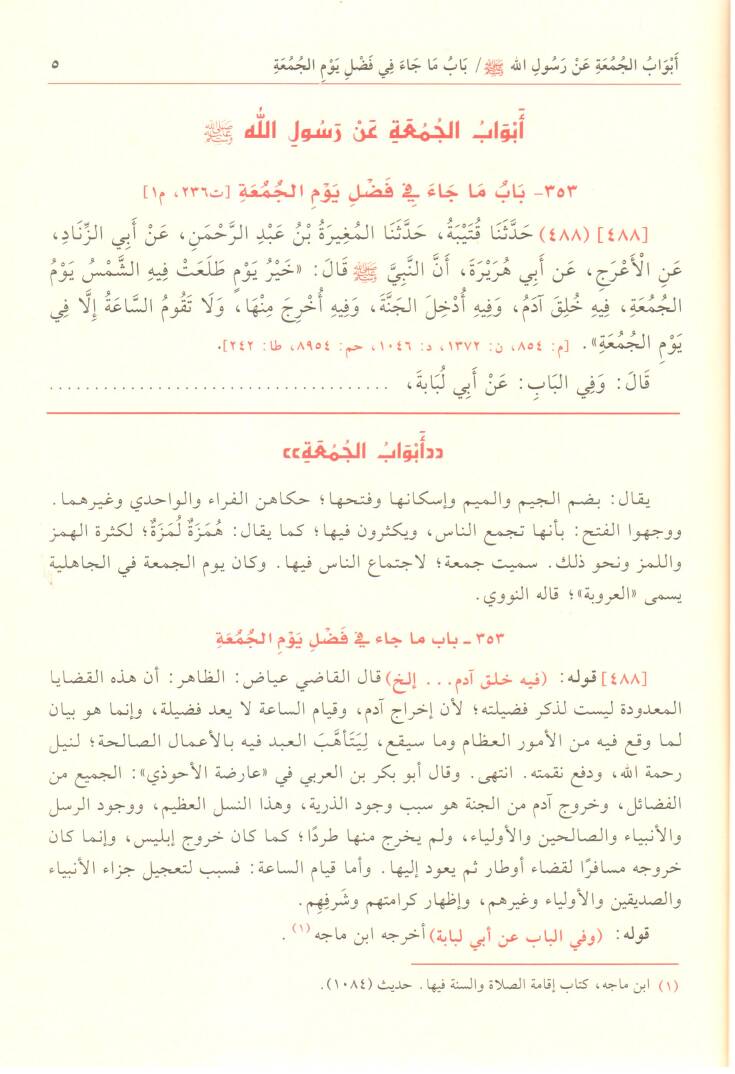 أَبْوَابُ الجُمُعَةِ عَنْ رَسُولِ الله ﷺ / بَابُ مَا جَاءَ فِي فَضْلِ يَوْمِ الجُمُعَةِ ٥
أَبْوَابُ الجُمُعَةِ عَنْ رَسُولِ اللَّه ﷺ
٣٥٣- بَابُ مَا جَاءَ فِي فَضْلِ يَوْمِ الجُمُعَةِ [ت٢٣٦، م١]
[٤٨٨] (٤٨٨) حَدَّثَنَا قُتَيْبَةُ، حَدَّثَنَا المُغِيرَةُ بْنُ عَبْدِ الرَّحْمَنِ، عَنْ أَبِي الزِّنَادِ،
عَنِ الْأَعْرَجِ، عَن أَبِي هُرَيْرَةَ، أَنَّ النَّبِيَّ ﷺ قَالَ: «خَيْرُ يَوْمٍ طَلَعَتْ فِيهِ الشَّمْسُ يَوْمُ
الجُمُعَةِ، فِيهِ خُلِقَ آدَمُ، وَفِيهِ أُدْخِلَ الجَنَّةَ، وَفِيهِ أُخْرِجَ مِنْهَا، وَلَا تَقُومُ السَّاعَةُ إِلَّا فِي
يَوْمِ الجُمُعَةِ». [م: ٨٥٤، ن: ١٣٧٢، د: ١٠٤٦، حم: ٨٩٥٤، طا: ٢٤٢].
قَالَ: وَفِي البَابِ: عَنْ أَبِي لُبَابَةَ، ....................................
««أَبْوَابُ الجُمُعَةِ»»
يقال: بضم الجيم والميم وإسكانها وفتحها؛ حكاهن الفراء والواحدي وغيرهما.
ووجهوا الفتح: بأنها تجمع الناس، ويكثرون فيها؛ كما يقال: هُمَزَةٌ لُمَزَةٌ؛ لكثرة الهمز
واللمز ونحو ذلك. سميت جمعة؛ لاجتماع الناس فيها. وكان يوم الجمعة في الجاهلية
يسمى «العروبة»؛ قاله النووي.
٣٥٣ ـ باب ما جاء في فَضْلِ يَوْمِ الجُمُعَةِ
[٤٨٨] قوله: (فيه خلق آدم... إلخ) قال القاضي عياض: الظاهر: أن هذه القضايا
المعدودة ليست لذكر فضيلته؛ لأن إخراج آدم، وقيام الساعة لا يعد فضيلة، وإنما هو بيان
لما وقع فيه من الأمور العظام وما سيقع، لِيَتَأهَّبَ العبد فيه بالأعمال الصالحة؛ لنيل
رحمة الله، ودفع نقمته. انتهى. وقال أبو بكر بن العربي في «عارضة الأحوذي»: الجميع من
الفضائل، وخروج آدم من الجنة هو سبب وجود الذرية، وهذا النسل العظيم، ووجود الرسل
والأنبياء والصالحين والأولياء، ولم يخرج منها طردًا؛ كما كان خروج إبليس، وإنما كان
خروجه مسافرًا لقضاء أوطار ثم يعود إليها. وأما قيام الساعة: فسبب لتعجيل جزاء الأنبياء
والصديقين والأولياء وغيرهم، وإظهار كرامتهم وشَرفِهِم.
قوله: (وفي الباب عن أبي لبابة) أخرجه ابن ماجه (١).
(١) ابن ماجه، كتاب إقامة الصلاة والسنة فيها. حديث (١٠٨٤).